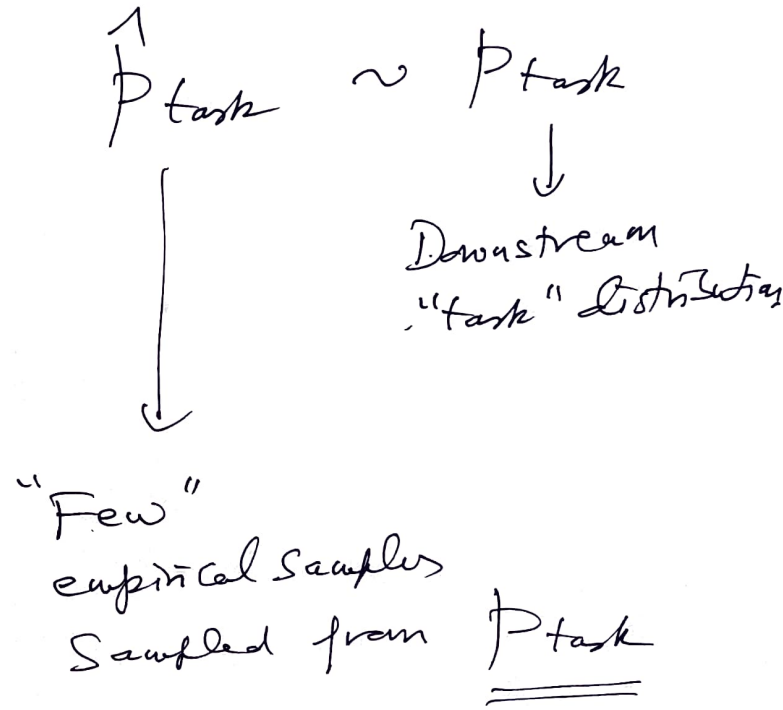 p̂ task ~ p task
Downstream
"task" distribution
"Few"
empirical samples
Sampled from p task